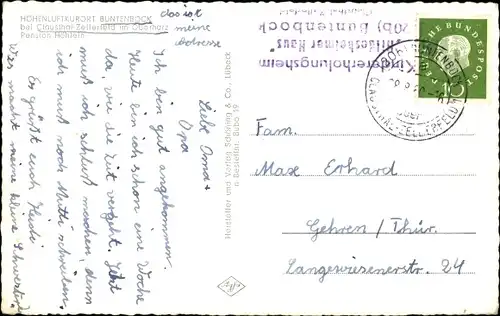 HÖHENLUFTKURORT BUNTENBOCK
bei Clausthal-Zellerfeld im Oberharz
Pension
das ist
meine
Adresse
Liebe Oma +
Opa
Ich bin gut angekommen.
Heute bin ich schon eine Woche
da, wie die Zeit vergeht. Jetzt
muß ich schluß machen, denn
ich muß noch Mutti schreiben.
Es grüßt euch Heidi
Was macht meine kleine Schwester
Hersteller und Verlag Schöning & Co., Lübeck
Kindererholungsheim
"Hildesheimer Haus"
20b) Buntenbock
DEUTSCHE BUNDESPOST
10
BUNTENBOCK
CLAUSTHAL-ZELLERFELD
Fam.
Max Erhard
Gehren / Thür.
Langewiesenerstr. 24